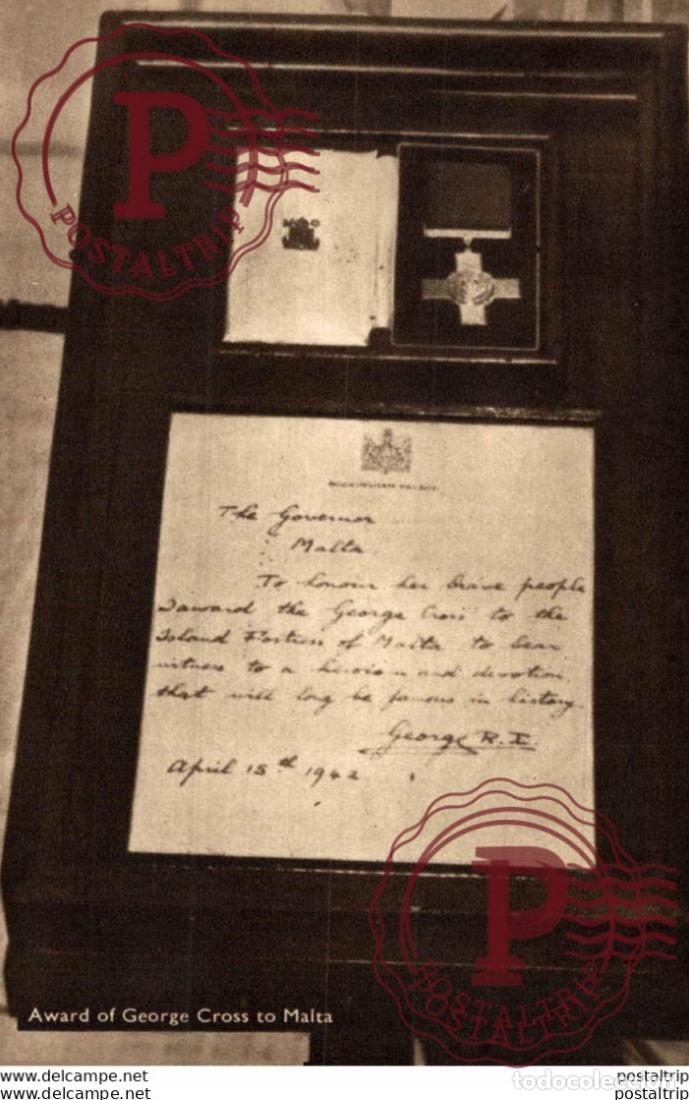 P
POSTALTRIP
BUCKINGHAM PALACE
The Governor
Malta
To honour her brave people
I award the George Cross to the
Island Fortress of Malta to bear
witness to a heroism and devotion
that will long be famous in history.
George R.I.
April 15th 1942
P
POSTALTRIP
POSTALTRIP
Award of George Cross to Malta
www.delcampe.net
postaltrip
todocoleccion
www.delcampe.net
postaltrip